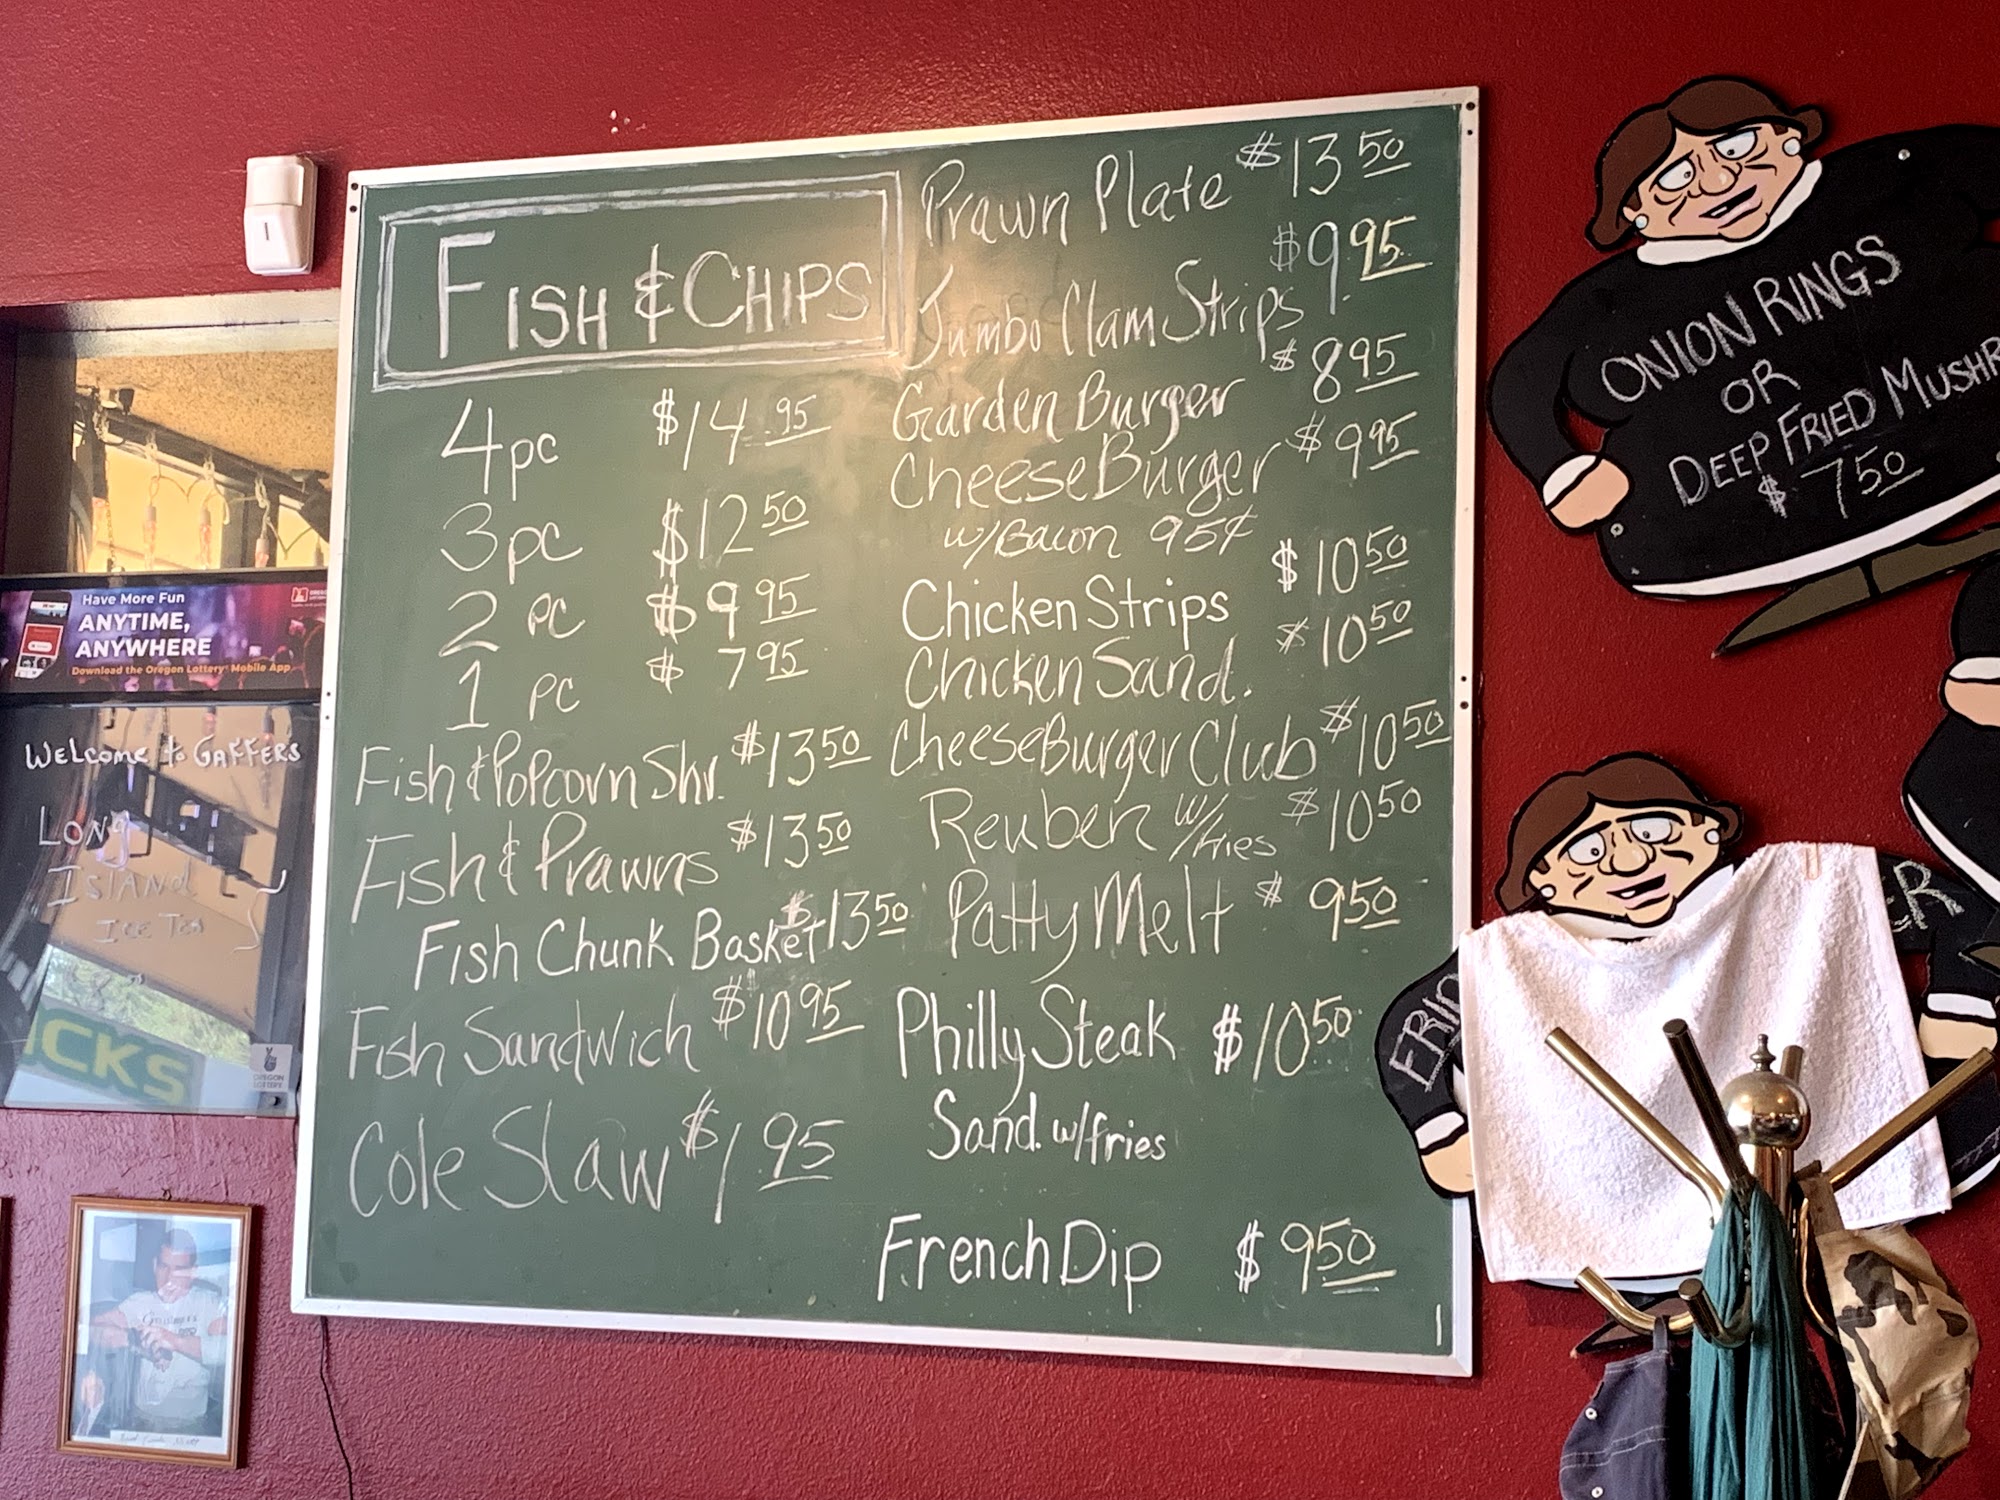 FISH & CHIPS
4pc $14.95
3pc $12.50
2 PC $9.95
1 PC $7.95
Fish & Popcorn Shr. $13.50
Fish & Prawns $13.50
Fish Chunk Basket $13.50
Fish Sandwich $10.95
Cole Slaw $1.95
Prawn Plate $13.50
Jumbo Clam Strips $9.95
Garden Burger $8.95
CheeseBurger $9.95
w/Bacon 95¢
Chicken Strips $10.50
Chicken Sand. $10.50
CheeseBurger Club $10.50
Reuben w/fries $10.50
Patty Melt $9.50
Philly Steak $10.50
Sand. w/fries
French Dip $9.50
ONION RINGS
OR
DEEP FRIED MUSHR
$7.50
Have More Fun
ANYTIME,
ANYWHERE
Download the Oregon Lottery Mobile App
WELCOME to GAFFERS
LONG
ISLAND
ICE TEA
ICKS
OREGON
LOTTERY